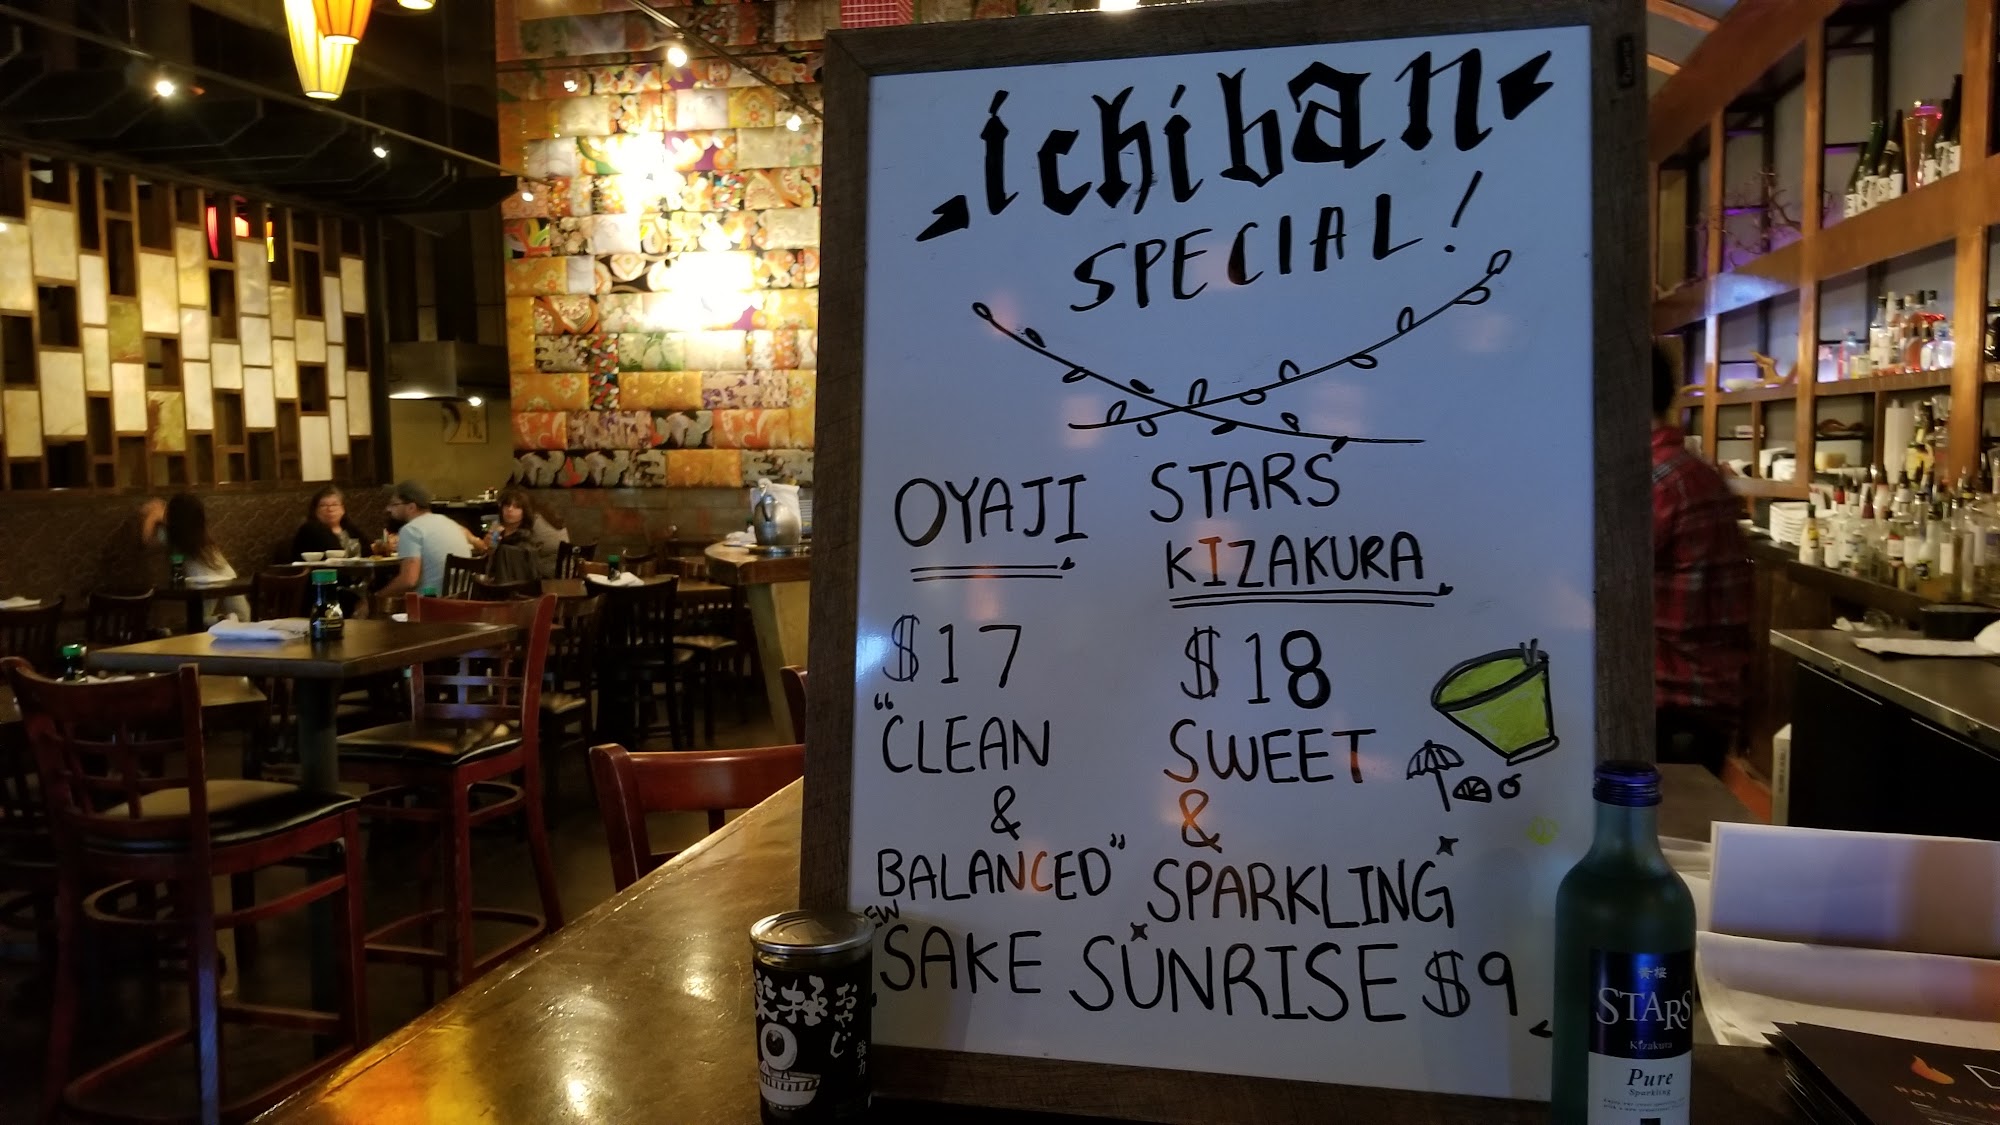 ichiban
SPECIAL!
OYAJI
$17
"CLEAN
&
BALANCED"
STARS
KIZAKURA
$18
SWEET
&
SPARKLING
SAKE SUNRISE $9
おやじ
強力
黄桜
STARS
Kizakura
Pure
Sparkling
HOT DISH